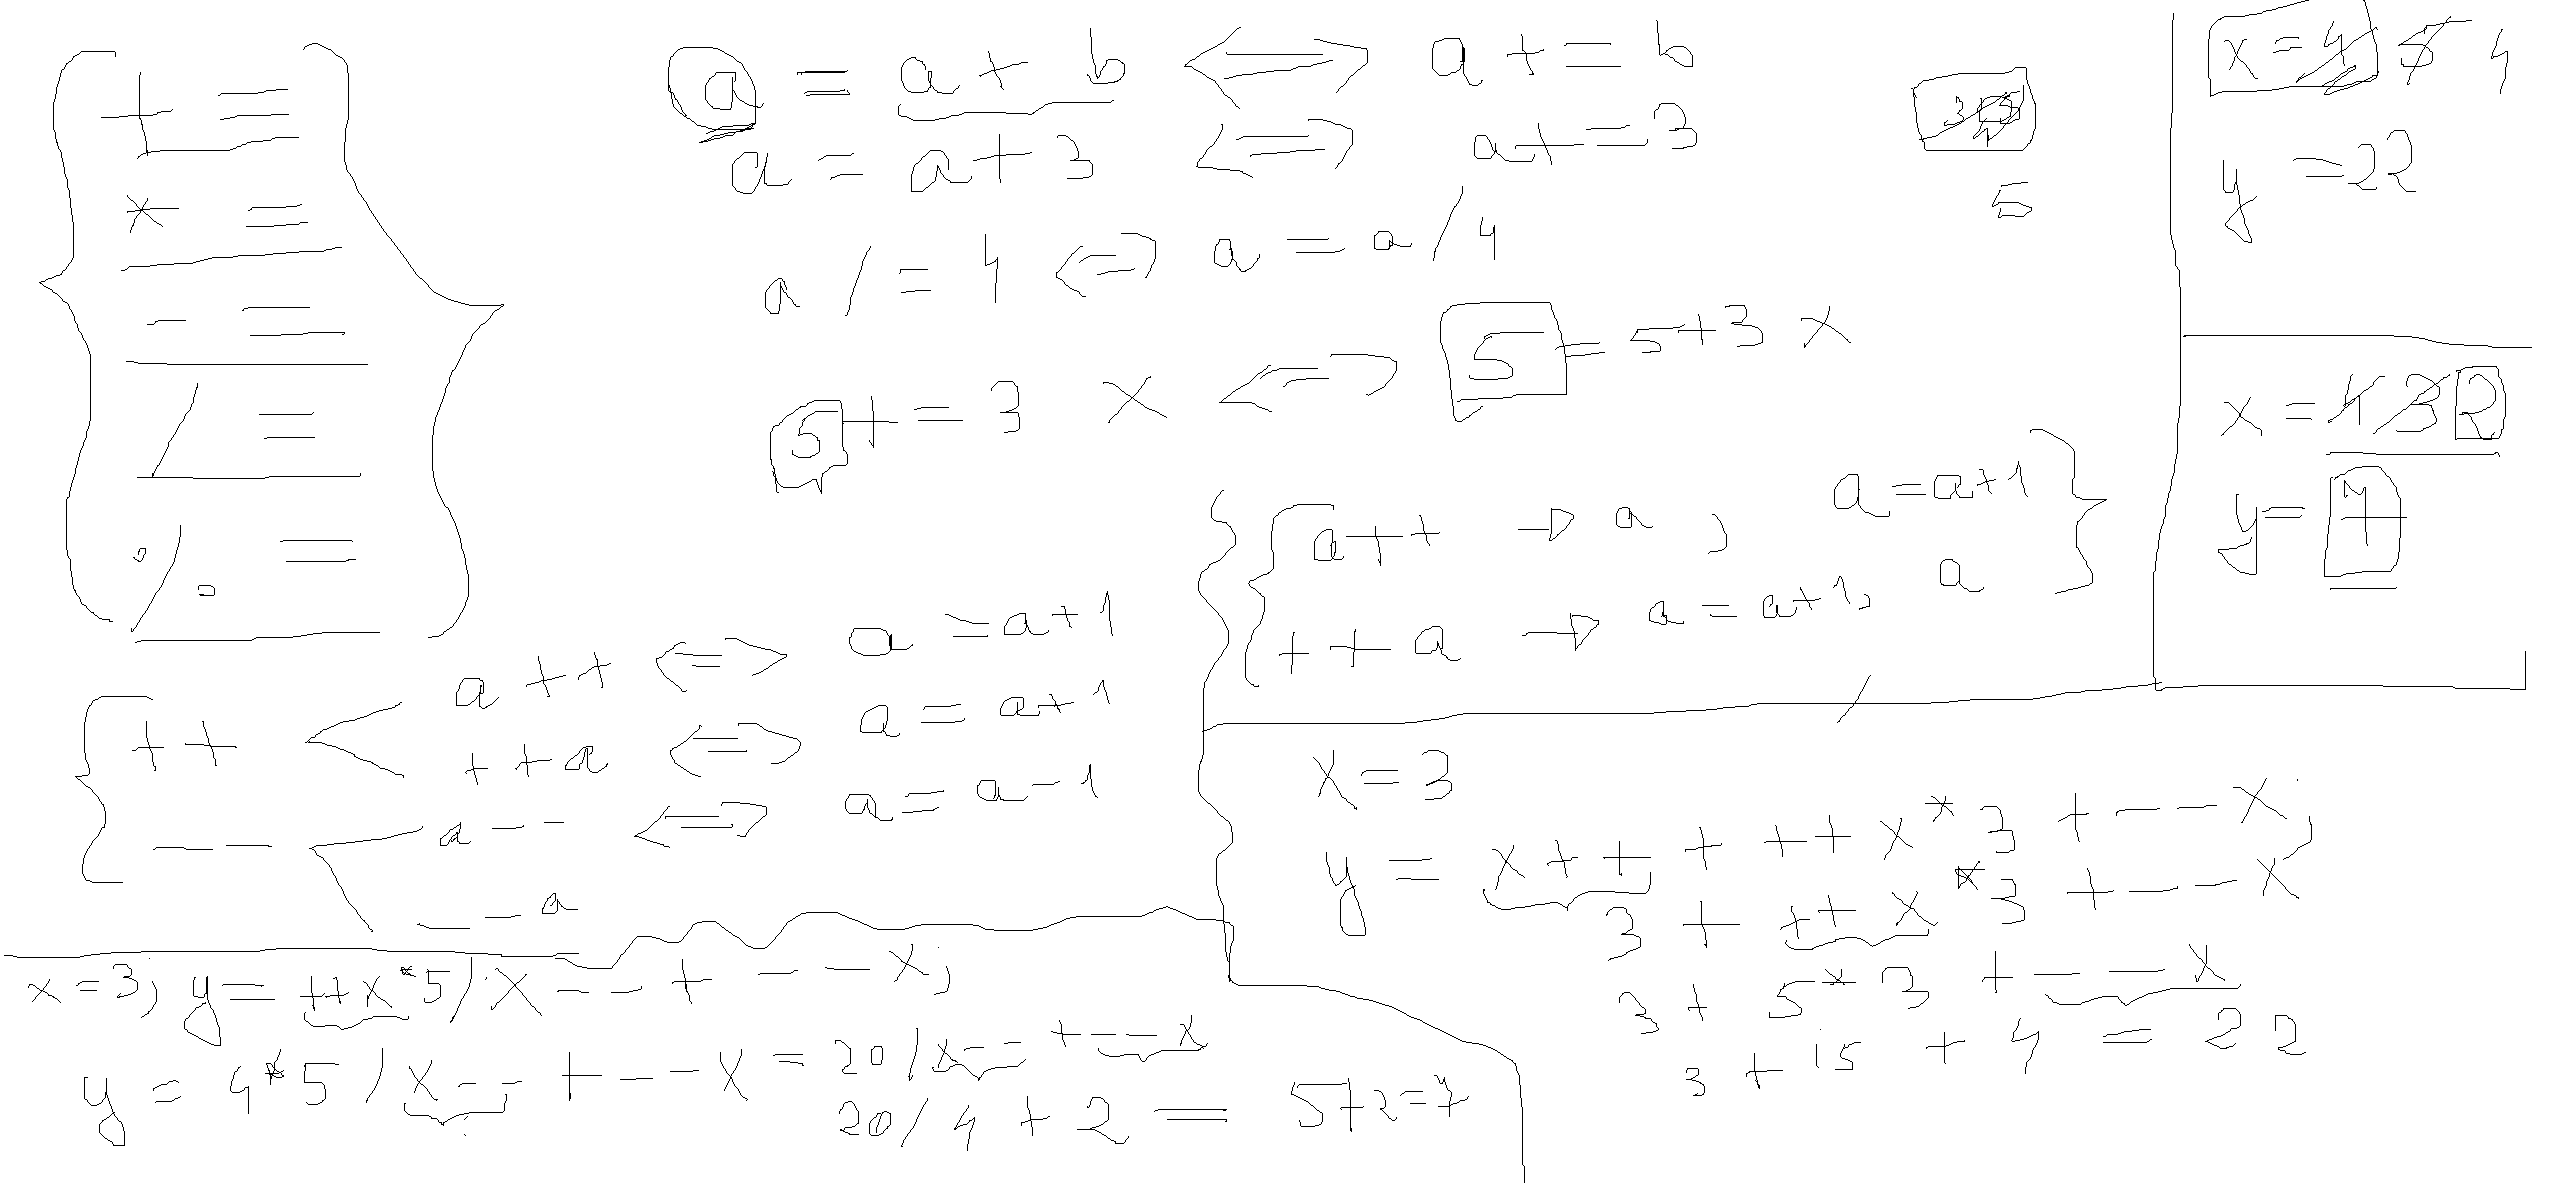 +=
*=
-=
/=
%=
a = a + b ⟺ a += b
a = a + 3 ⟺ a += 3
a /= 4 ⟺ a = a / 4
5 += 3 x ⟺ 5 = 5+3 x
5
x = 4 5 4
y = 22
x = 4 3 2
y = 7
a++ → a , a = a+1
++a → a = a+1, a
++ a++ ⟺ a = a+1
++a ⟺ a = a+1
-- a-- ⟺ a = a-1
--a
x = 3
y = x++ + ++x*3 + --x;
3 + ++x*3 + --x
3 + 5*3 + --x
3 + 15 + 4 = 22
x = 3; y = ++x*5/x-- + --x;
y = 4*5/x-- + --x = 20/x-- + --x
20/4 + 2 = 5+2=7